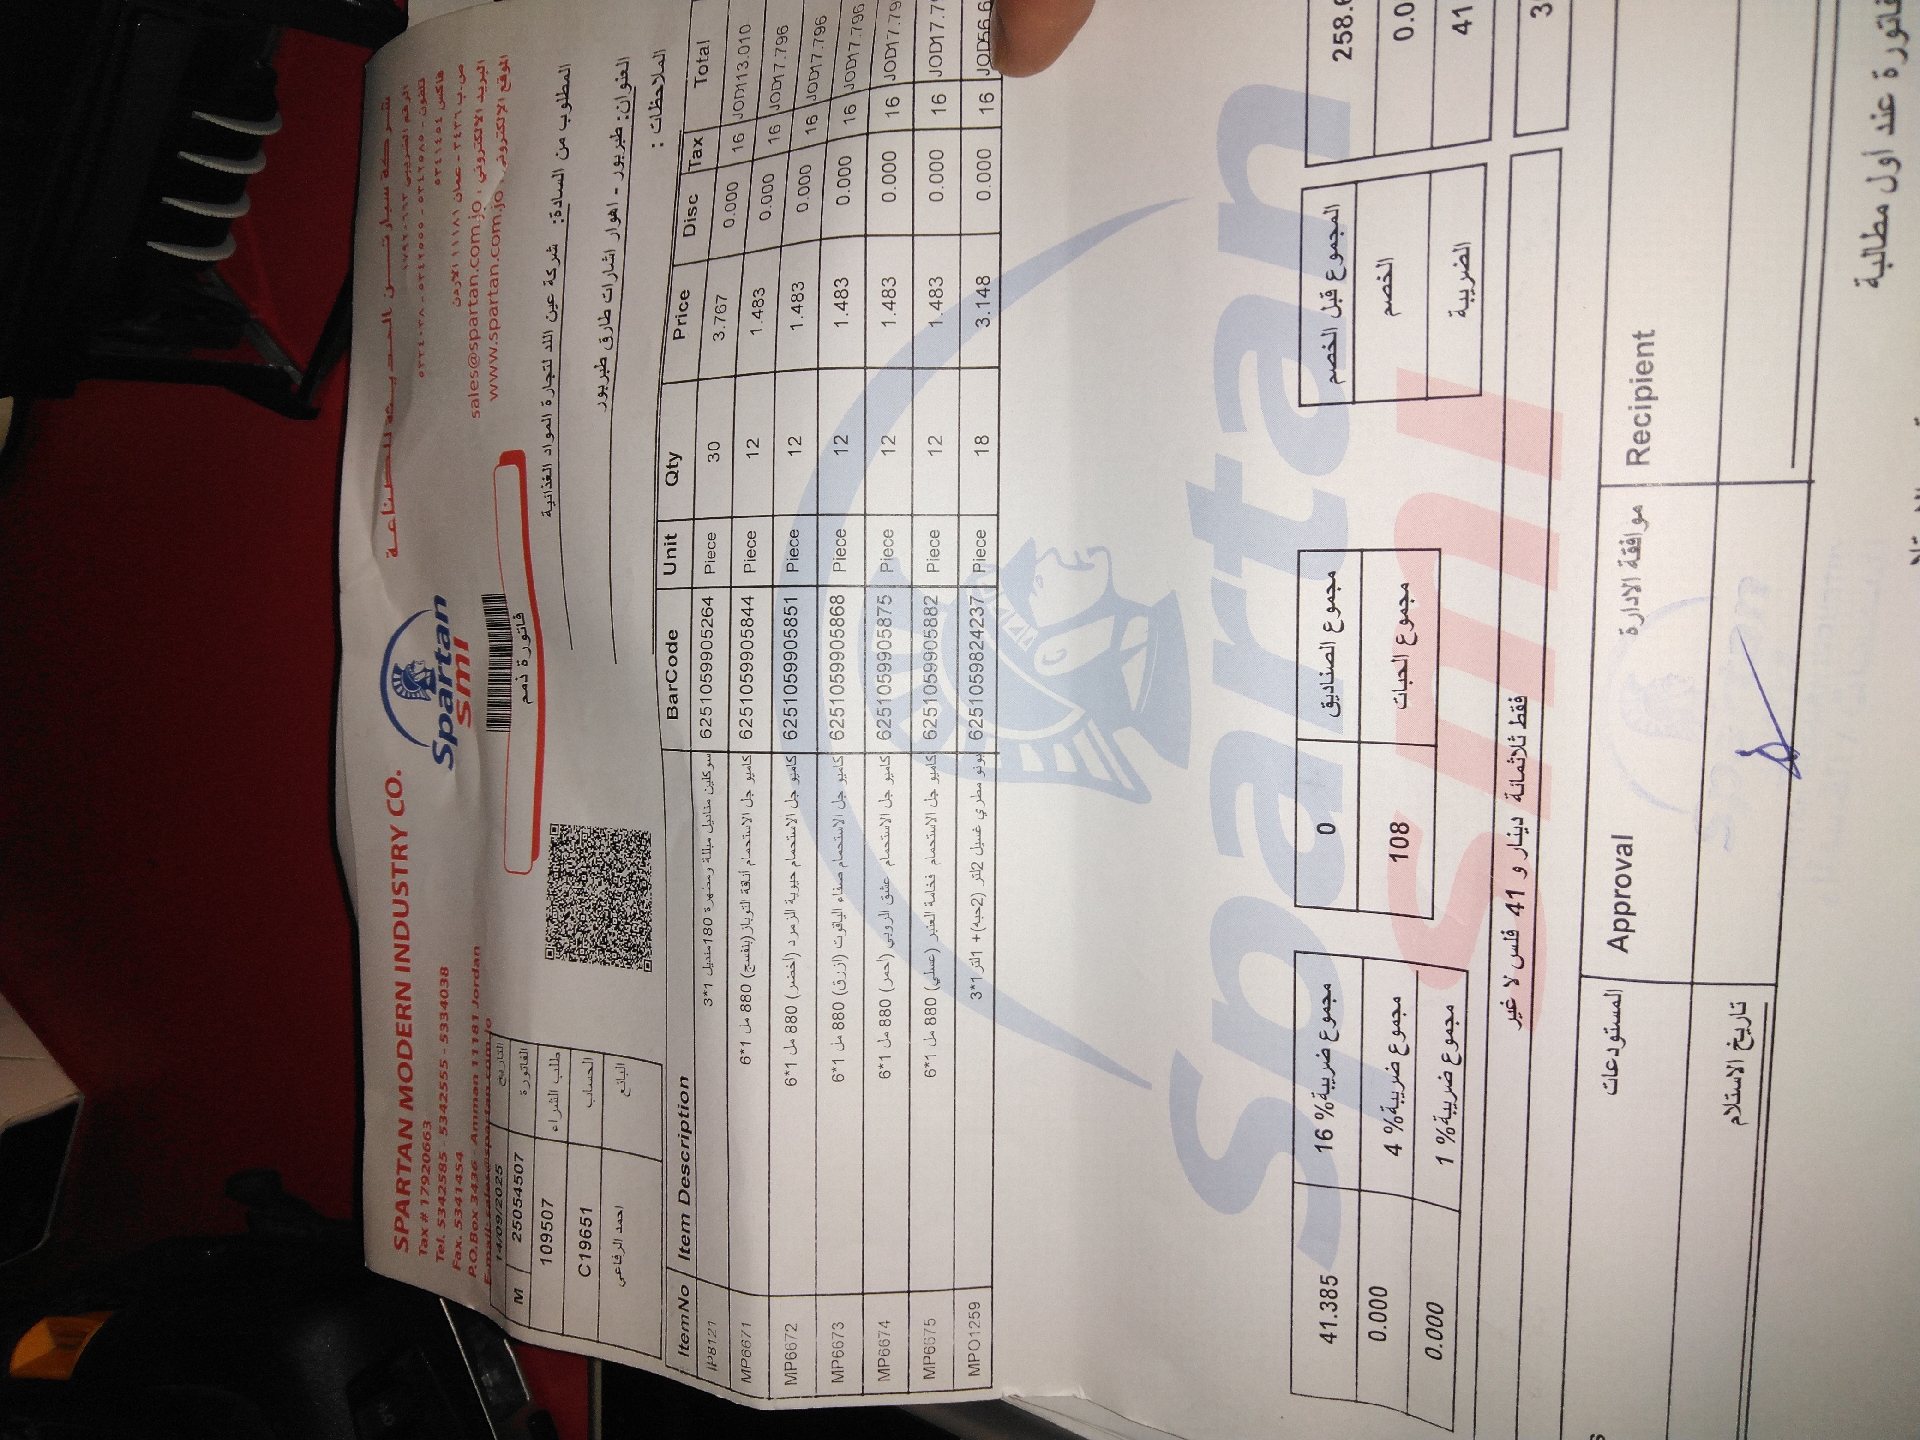 SPARTAN MODERN INDUSTRY CO.
Tax # 17920663
Tel. 5342585 - 5342555 - 5334038
Fax. 5341454
P.O.Box 3436 - Amman 11181 Jordan
Spartan
smi
شركة سبارتن الحديثة للصناعة
الرقم الضريبي ١٧٩٢٠٦٦٣
تلفون ٥٣٤٢٥٨٥ - ٥٣٤٢٥٥٥ - ٥٣٣٤٠٣٨
فاكس ٥٣٤١٤٥٤
ص.ب ٣٤٣٦ - عمان ١١١٨١ الاردن
البريد الالكتروني: sales@spartan.com.jo
الموقع الإلكتروني: www.spartan.com.jo
فاتورة ذمم
14/09/2025 التاريخ
M 25054507 الفاتورة
109507 طلب الشراء
C19651 الحساب
احمد الرفاعي البائع
المطلوب من السادة: شركة عين اللد لتجارة المواد الغذائية
العنوان: طبربور - اهوار اشارات طارق طبربور
الملاحظات :
ItemNo Item Description BarCode Unit Qty Price Disc Tax Total
IP8121 سوكلين مناديل مبللة ومطهرة 180منديل 1*3 6251059905264 Piece 30 3.767 0.000 16 JOD113.010
MP6671 كاميو جل الاستحمام أنقة التوباز (بنفسج) 880 مل 1*6 6251059905844 Piece 12 1.483 0.000 16 JOD17.796
MP6672 كاميو جل الاستحمام حيوية الزمرد (اخضر) 880 مل 1*6 6251059905851 Piece 12 1.483 0.000 16 JOD17.796
MP6673 كاميو جل الاستحمام صفاء الياقوت (ازرق) 880 مل 1*6 6251059905868 Piece 12 1.483 0.000 16 JOD17.796
MP6674 كاميو جل الاستحمام عشق الروبي (احمر) 880 مل 1*6 6251059905875 Piece 12 1.483 0.000 16 JOD17.79
MP6675 كاميو جل الاستحمام فخامة العنبر (عسلي) 880 مل 1*6 6251059905882 Piece 12 1.483 0.000 16 JOD17.7
MPO1259 بونو مطري غسيل 2لتر (2حبه)+ 1لتر 1*3 6251059824237 Piece 18 3.148 0.000 16 JOD56.6
Spartan
smi
41.385 مجموع ضريبة% 16
0.000 مجموع ضريبة% 4
0.000 مجموع ضريبة% 1
0 مجموع الصناديق
108 مجموع الحبات
المجموع قبل الخصم 258.6
الخصم 0.0
الضريبة 41
فقط ثلاثمائة دينار و 41 فلس لا غير
3
المستودعات
Approval موافقة الادارة
Recipient
تاريخ الاستلام
فاتورة عند اول مطالبة